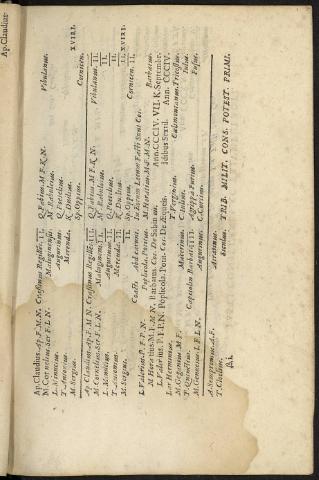 Ap. Claudius. Ap. F. M. N. Crassinus Regillē. II. Q. Fabius. M. F. K. N. Vibulanus. XVIRI.
M. Cornelius. Ser. F. L. N. Maluginensis. M. Rabuleius.
L. Minucius. Augurinus. Q. Poetelius.
T. Antonius. Merenda. K. Duilius.
M. Sergius. Sp. Oppius. Cornicen.
Ap. Claudius. Ap. F. M. N. Crassinus Regillē. III. Q. Fabius. M. F. K. N. Vibulanus. II.
M. Cornelius. Ser. F. L. N. Malugmens. II. M. Rabuleius. II.
L. Minucius. Augurinus. II. Q. Poetelius. II.
T. Antonius. Merenda. II. K. Duilius. II.
M. Sergius. II. Sp. Oppius. Cornicen. II. XVIRI.
Coacti Abdicarunt. In Eorum Locum Facti Sunt Cos.
L. Valerius. P. F. P. N. Poplicola. Potitus. M. Horatius. M. F. M. N. Barbatus.
M. Horatius. M. F. M. N. Barbatus. Cos. De Sabineis Ann. CCCIV. VII. K. Septembr.
L. Valerius. P. F. P. N. Poplicola. Potit. Cos. De Æqueis. Idibus Sextil. Ann. CCCIV.
Lar Herminius. T. Verginius. Cœlimontanus. Tricostus.
M. Geganius M. F. Macerinus. C. Iulius. Iulus.
T. Quinctius. Capitolin. Barbat. IIII. Agrippa Furius. Fusus.
M. Genucius. Augurinus. C. Curtius.
A. Sempronius. A. F. Atratinus. TRIB. MILIT. CONS. POTEST. PRIMI.
T. Cloelius. Siculus.
Ap. Claudius